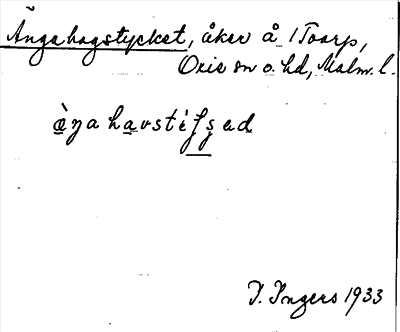 Ängahagstycket, åker å 1 Toarp,
Oxie sn o. hd, Malm. l.
I. Ingers 1933